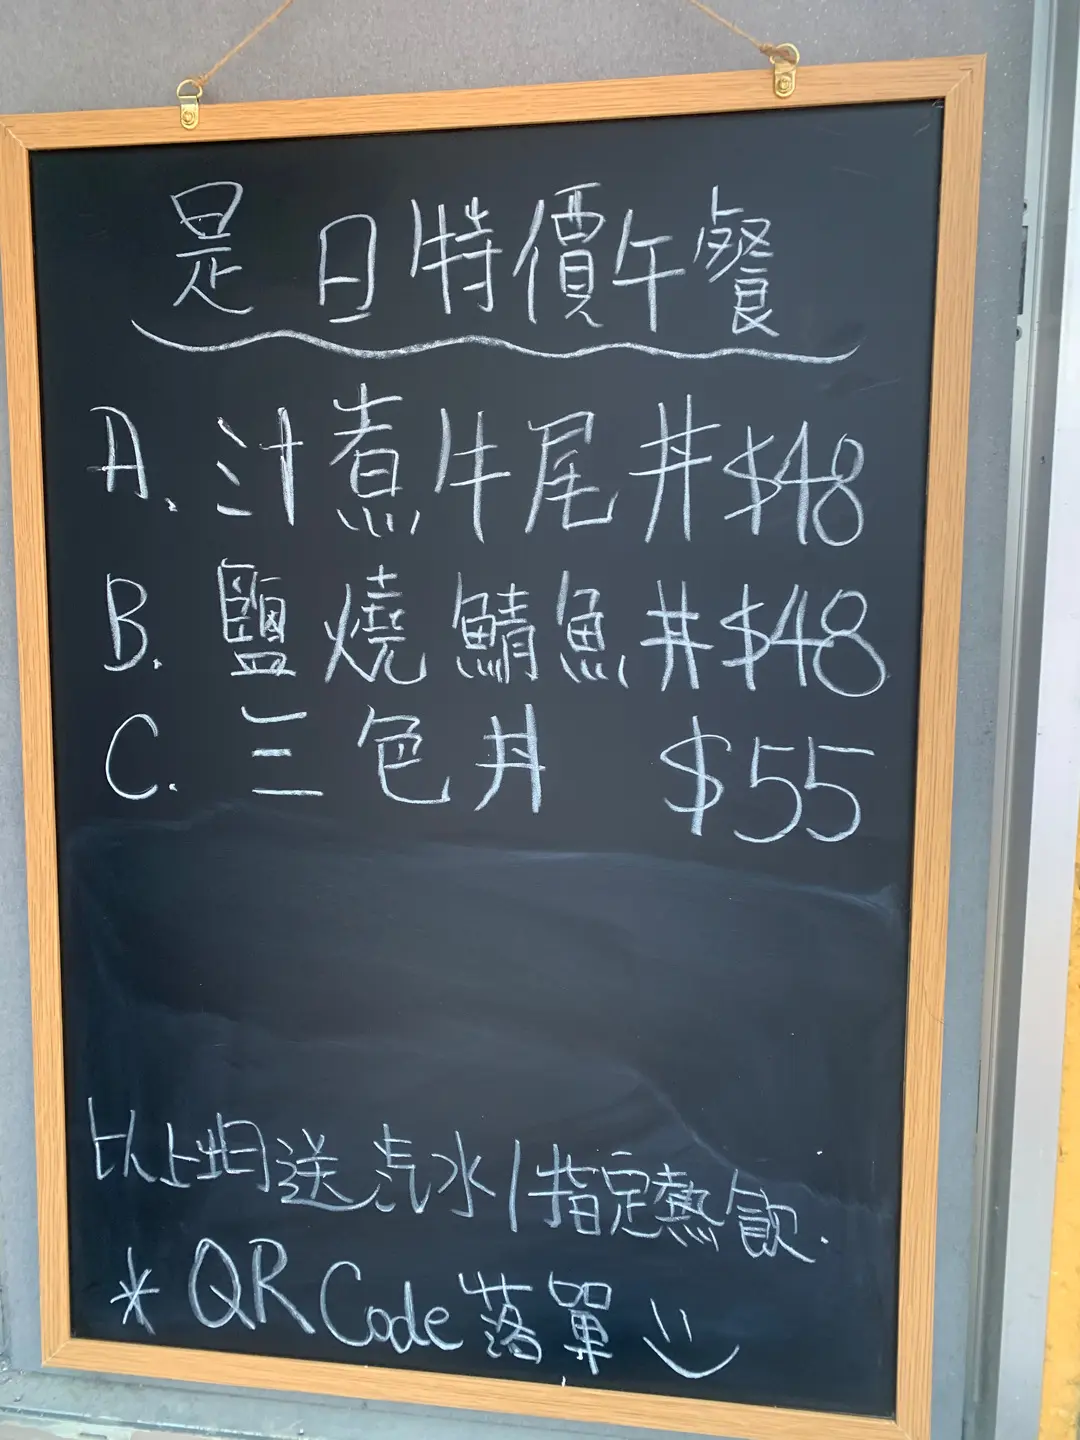 是日特價午餐
A. 汁煮牛尾丼 $48
B. 鹽燒鯖魚丼 $48
C. 三色丼 $55
以上均送汽水/指定熱飲.
* QR Code 落單